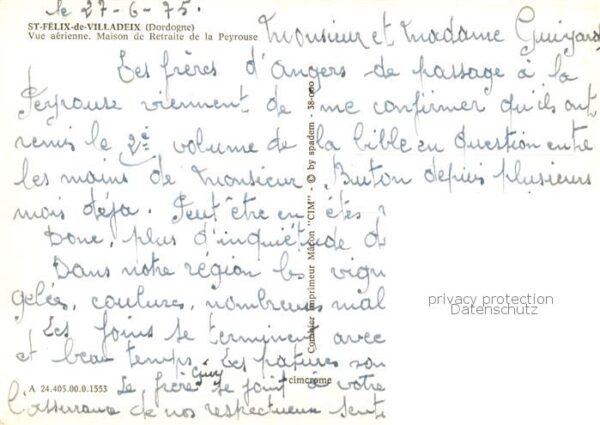 le 27-6-75.
ST-FÉLIX-de-VILLADEIX (Dordogne)
Vue aérienne. Maison de Retraite de la Peyrouse
Monsieur et Madame Guiyard
Les frères d'Angers de passage à la
Peyrouse viennent de me confirmer qu'ils ont
remis le 2e volume de la bible en question entre
les mains de Monsieur Buton depuis plusieurs
mois déja. Peut être en étés
Donc, plus d'inquiétude d
Dans notre région les vign
gelées, coulures, nombreuses mal
Les foins se terminent avec
et beau temps. Les patures son
Le frère se joint à votre
l'assurance de nos respectueux sent
Combier imprimeur Mâcon "CIM" - © by spadem - 38-000
cimcrome
A 24.405.00.0.1553
privacy protection
Datenschutz